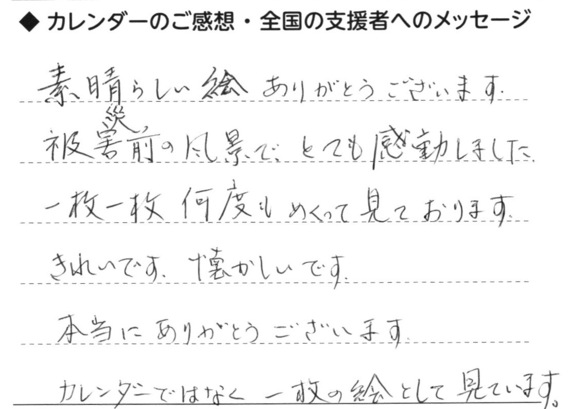 ◆ カレンダーのご感想・全国の支援者へのメッセージ
素晴らしい絵 ありがとうございます.
被災前の風景で、とても感動しました.
一枚一枚 何度も めくって見ております.
きれいです. 懐かしいです.
本当に ありがとうございます.
カレンダーではなく 一枚の絵として見ています。